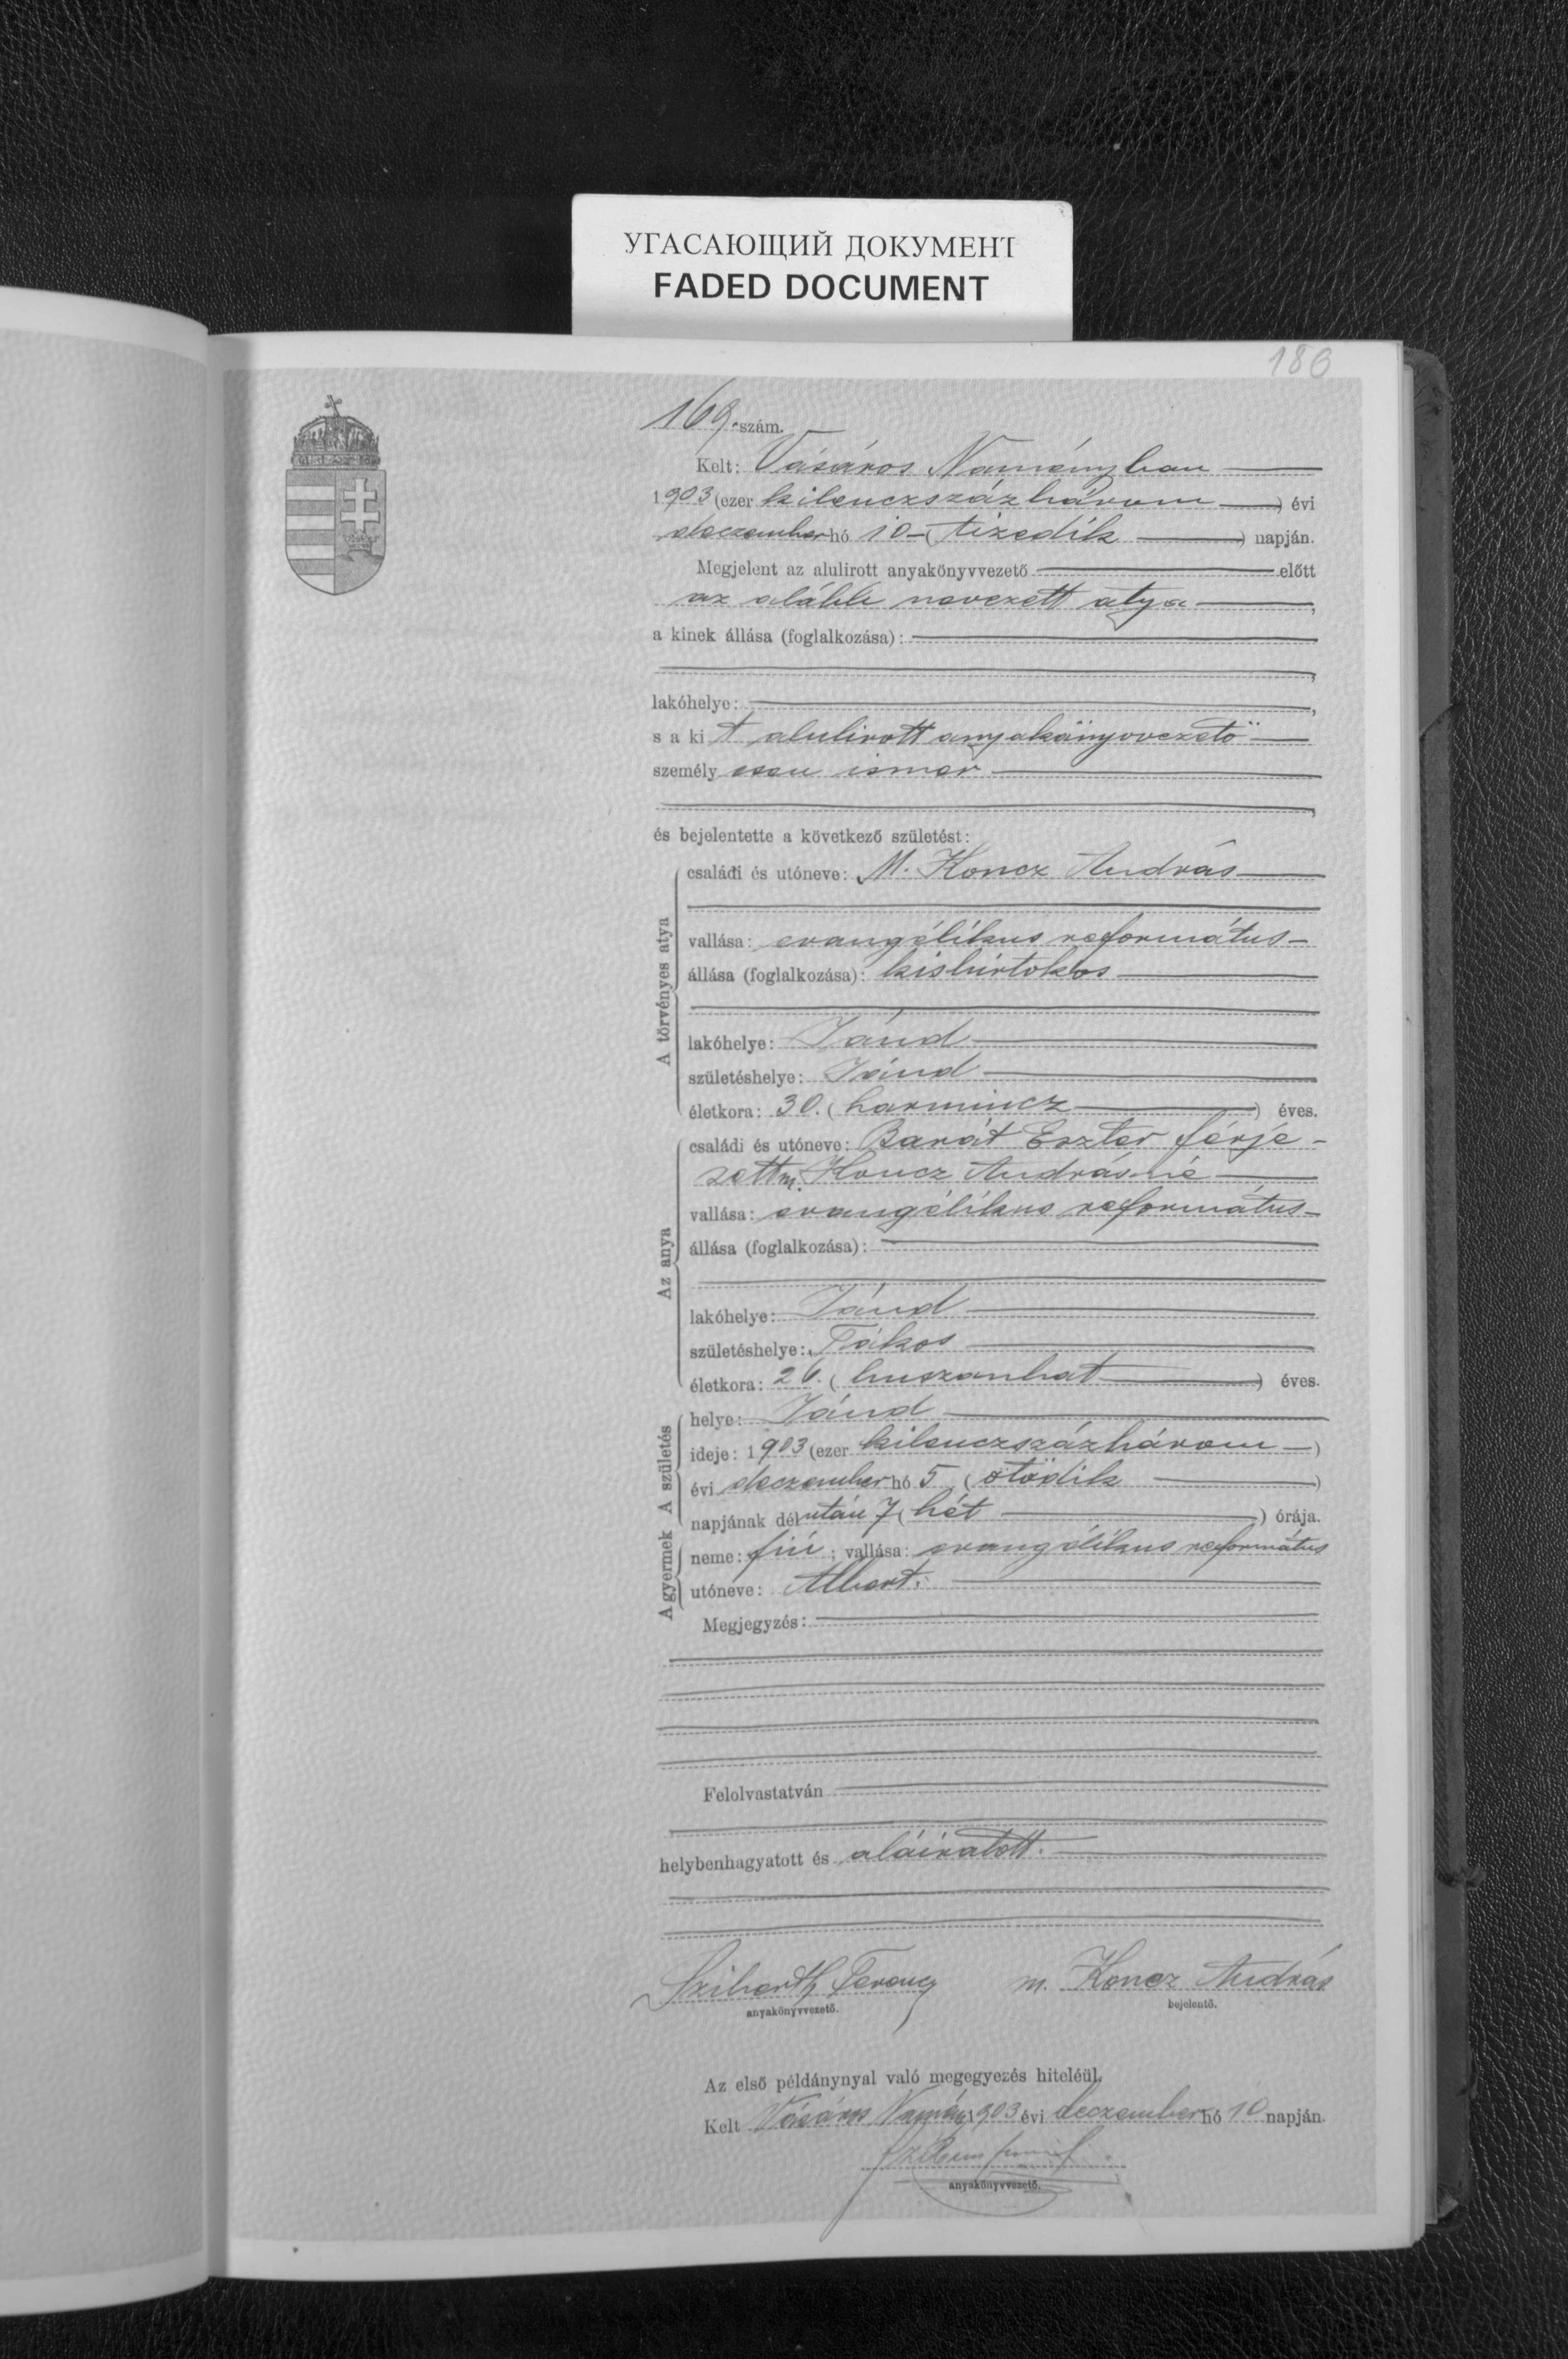 УГАСАЮЩИЙ ДОКУМЕНТ
FADED DOCUMENT
186
169. szám.
Kelt: Vásáros Naményban
1903 (ezer kilenczszázhárom) évi
deczember hó 10 (tizedik) napján.
Megjelent az alulirott anyakönyvvezető előtt
az alább nevezett atya,
a kinek állása (foglalkozása):
lakóhelye:
s a kit alulirott anyakönyvvezető
személyesen ismer
és bejelentette a következő születést:
A törvényes atya
családi és utóneve: M. Koncz András
vallása: evangélikus református
állása (foglalkozása): kisbirtokos
lakóhelye: Jánd
születéshelye: Jánd
életkora: 30. (harmincz) éves.
Az anya
családi és utóneve: Barát Eszter férje-
zett m. Koncz Andrásné
vallása: evangélikus református
állása (foglalkozása):
lakóhelye: Jánd
születéshelye: Tákos
életkora: 26. (huszonhat) éves.
A születés
helye: Jánd
ideje: 1903 (ezer kilenczszázhárom)
évi deczember hó 5 (ötödik)
napjának délután 7 (hét) órája.
A gyermek
neme: fiú; vallása: evangélikus református
utóneve: Albert.
Megjegyzés:
Felolvastatván
helybenhagyatott és aláiratott.
Ferencz m. Koncz András
anyakönyvvezető. bejelentő.
Az első példánynyal való megegyezés hiteléül.
Kelt Vásáros Namény 1903 évi deczember hó 10 napján.
anyakönyvvezető.